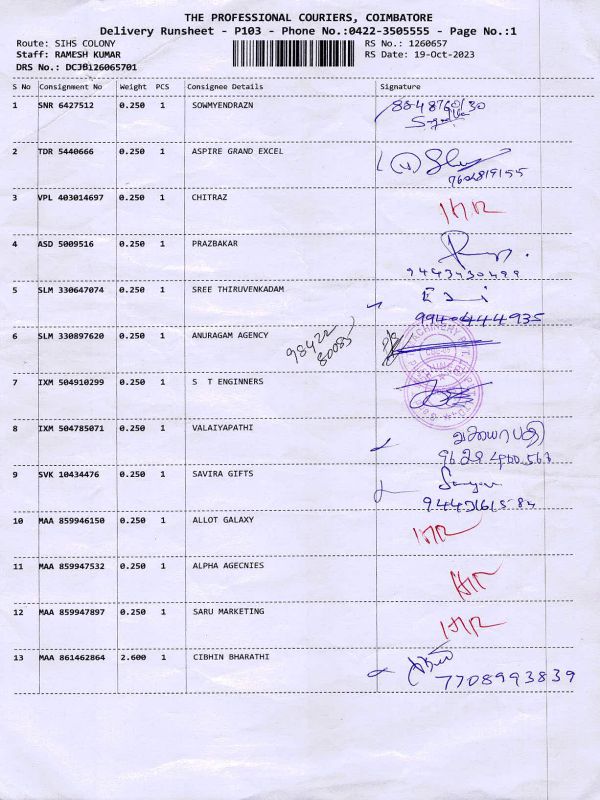 THE PROFESSIONAL COURIERS, COIMBATORE
Delivery Runsheet - P103 - Phone No.:0422-3505555 - Page No.:1
Route: SIHS COLONY RS No.: 1260657
Staff: RAMESH KUMAR RS Date: 19-Oct-2023
DRS No.: DCJB126065701
S No Consignment No Weight PCS Consignee Details Signature
1 SNR 6427512 0.250 1 SOWMYENDRAZN
2 TDR 5440666 0.250 1 ASPIRE GRAND EXCEL
3 VPL 403014697 0.250 1 CHITRAZ
4 ASD 5009516 0.250 1 PRAZBAKAR
9443430499
5 SLM 330647074 0.250 1 SREE THIRUVENKADAM
9940444935
6 SLM 330897620 0.250 1 ANURAGAM AGENCY
98422
80085
7 IXM 504910299 0.250 1 S T ENGINNERS
8 IXM 504785071 0.250 1 VALAIYAPATHI
வளையாபதி
9628460563
9 SVK 10434476 0.250 1 SAVIRA GIFTS
10 MAA 859946150 0.250 1 ALLOT GALAXY
11 MAA 859947532 0.250 1 ALPHA AGECNIES
12 MAA 859947897 0.250 1 SARU MARKETING
13 MAA 861462864 2.600 1 CIBHIN BHARATHI
7708993839